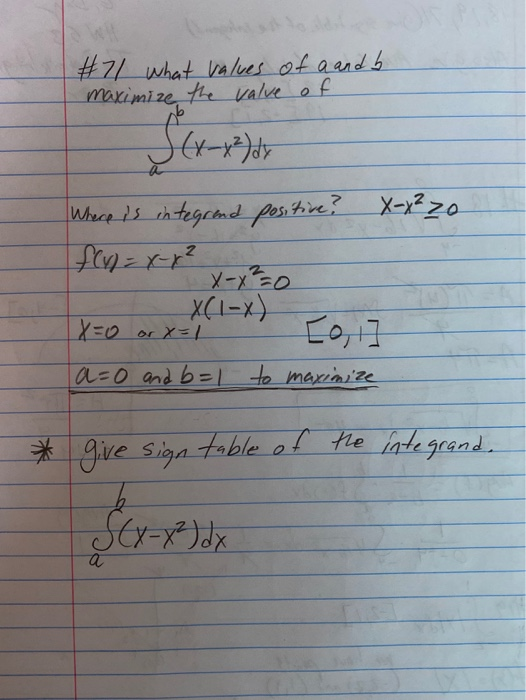 #71 What values of a and b
maximize the value of
∫_a^b (x-x²)dx
Where is integrand positive? x-x² ≥ 0
f(x) = x-x²
x-x²=0
x(1-x)
x=0 or x=1 [0,1]
a=0 and b=1 to maximize
* give sign table of the integrand.
∫_a^b (x-x²)dx